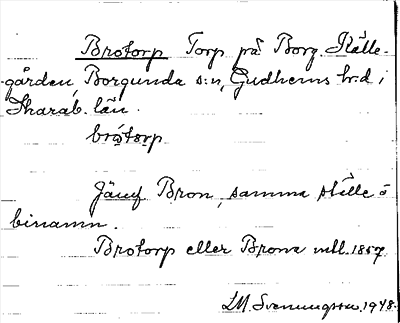 Brotorp Torp på Borg. Källe-
gården, Borgunda s:n, Gudhems h:d i
Skarab. län.
brotorp
Jämf Bron, samma ställe o
binamn.
Brotorp eller Brona mtl. 1857
LM. Svenungsson. 1948.